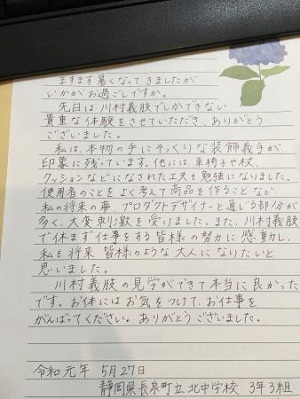 ますます暑くなってきましたが
いかがお過ごしですか。
先日は川村義肢でしかできない
貴重な体験をさせていただき、ありがとう
ございました。
私は、本物の手にそっくりな装飾義手が
印象に残っています。他には車椅子や杖、
クッションなどになされた工夫も勉強になりました。
使用者のことをよく考えて商品を作ることなど
私の将来の夢、プロダクトデザイナーと通じる部分が
多く、大変刺激を受けました。また、川村義肢
で休まず仕事をする皆様の努力に感動し、
私も将来 皆様のような大人になりたいと
思いました。
川村義肢の見学ができて本当に良かった
です。お体にはお気をつけて、お仕事を
がんばってください。ありがとうございました。
令和元年 5月27日
静岡県長泉町立北中学校 3年3組